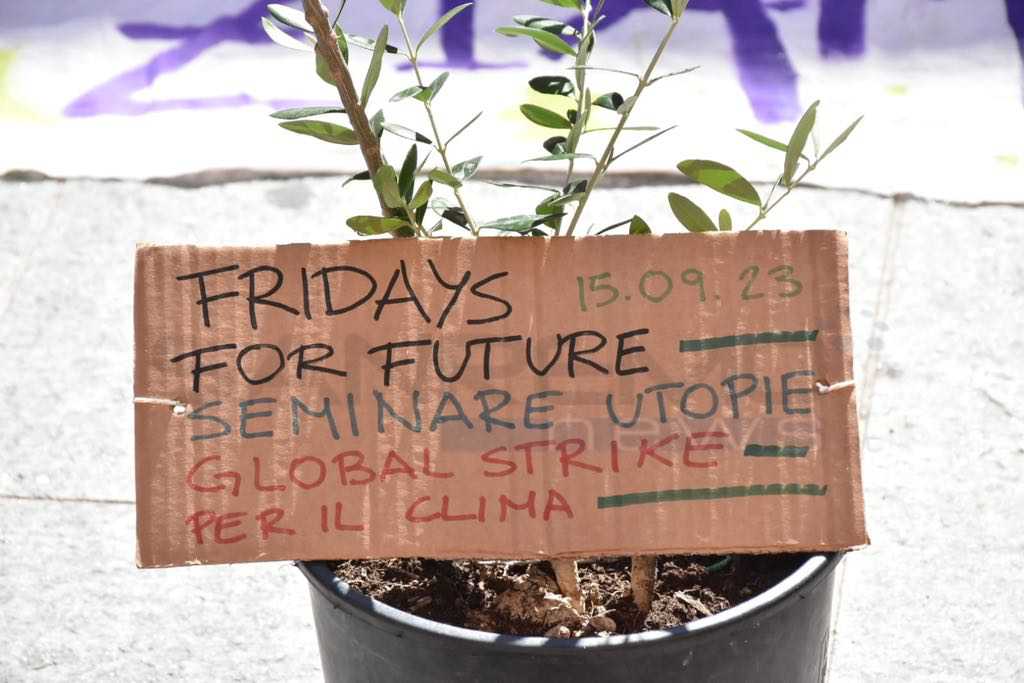 FRIDAYS 15.09.23
FOR FUTURE
SEMINARE UTOPIE
GLOBAL STRIKE
PER IL CLIMA
news